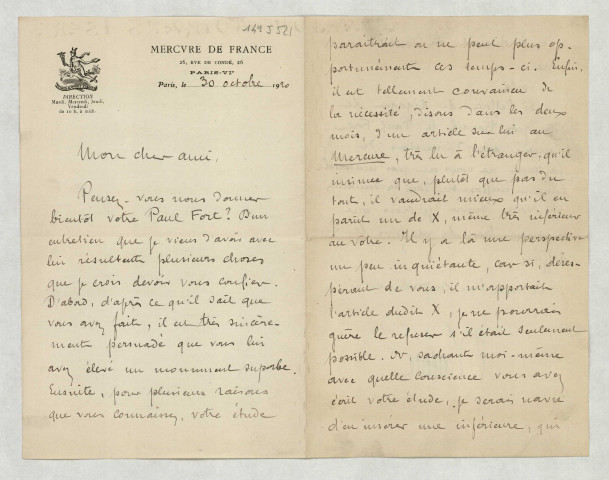 149 J 521
MERCVRE DE FRANCE
26, RVE DE CONDÉ, 26
PARIS-VIe
Paris, le 30 octobre 1920
DIRECTION
Mardi, Mercredi, Jeudi,
Vendredi
de 10 h. à midi.
Mon cher ami,
Pensez-vous nous donner
bientôt votre Paul Fort? D'un
entretien que je viens d'avoir avec
lui résultent plusieurs choses
que je crois devoir vous confier.
D'abord, d'après ce qu'il sait que
vous avez fait, il est très sincère-
ment persuadé que vous lui
avez élevé un monument superbe.
Ensuite, pour plusieurs raisons
que vous connaissez, votre étude
paraîtrait on ne peut plus op-
portunément ces temps-ci. Enfin,
il est tellement convaincu de
la nécessité, disons dans les deux
mois, d'un article sur lui au
Mercure, très lu à l'étranger, qu'il
insinue que, plutôt que pas du
tout, il vaudrait mieux qu'il en
parût un de X, même très inférieur
au vôtre. Il y a là une perspective
un peu inquiétante, car si, déses-
pérant de vous, il m'apportait
l'article dudit X, je ne pourrais
guère le refuser s'il était seulement
possible. Or, sachant moi-même
avec quelle conscience vous avez
écrit votre étude, je serais navré
d'en insérer une inférieure, qui